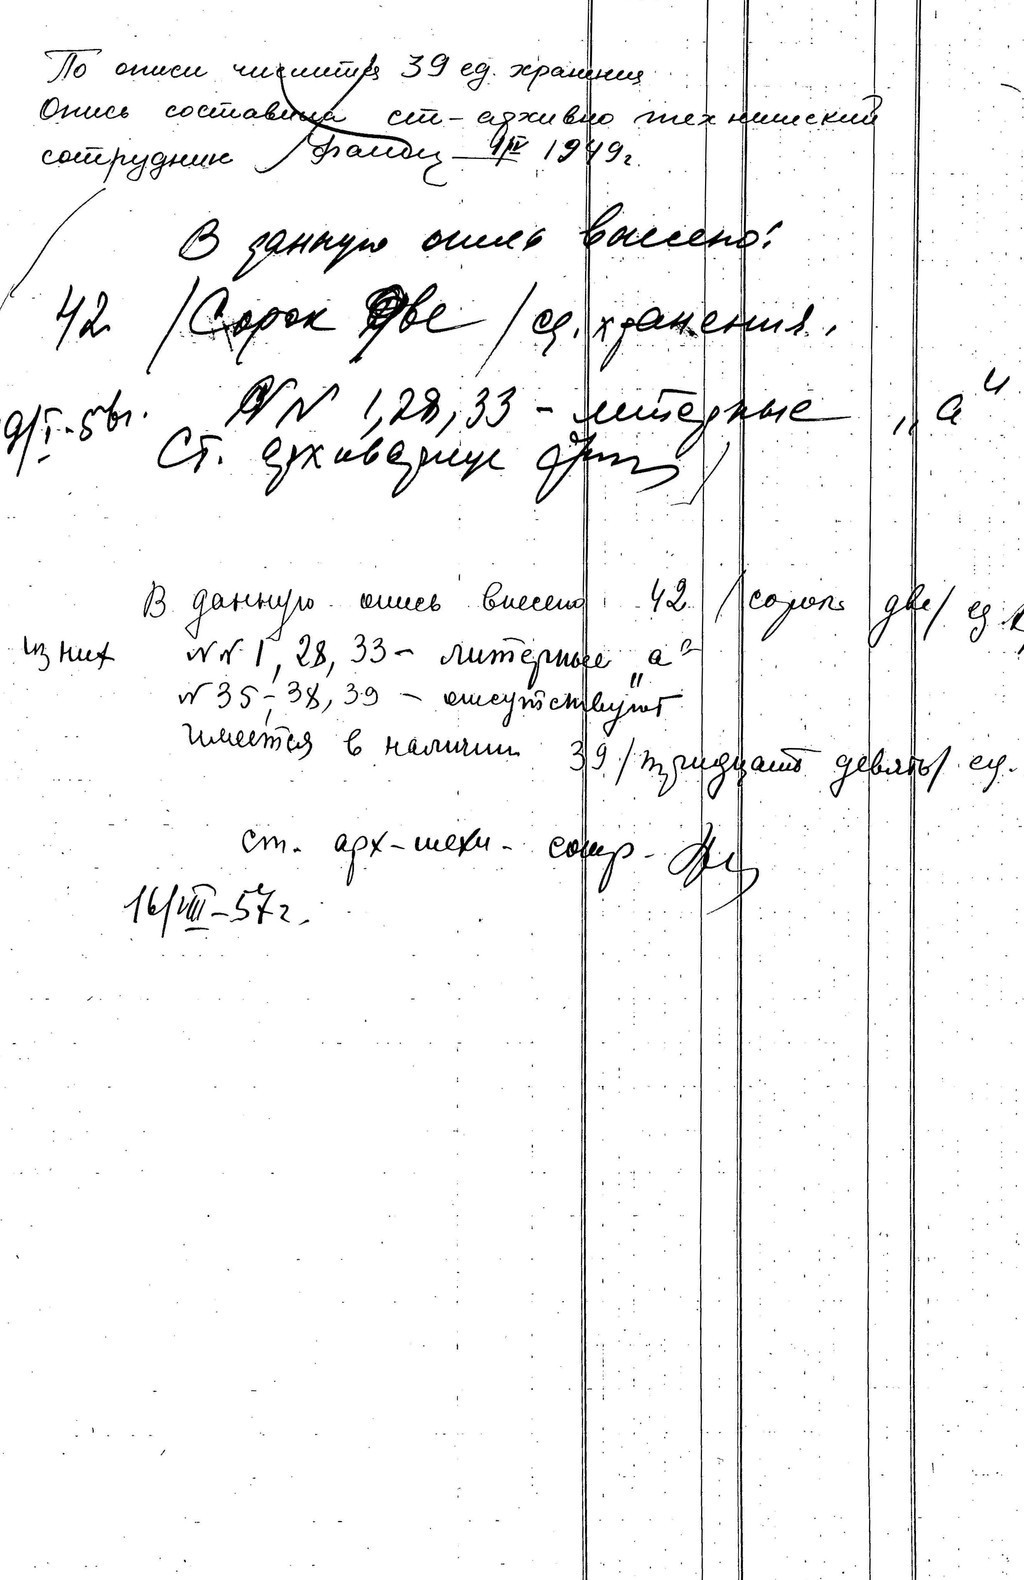 По описи числится 39 ед. хранения
Опись составила ст-архивно технический
сотрудник 9/IV 1949г.
В данную опись внесено:
42 /Сорок две/ ед. хранения.
NN 1, 28, 33 - литерные „а"
Ст. архивариус
В данную опись внесено 42 /сорок две/ ед. х
из них NN 1, 28, 33 - литерные „а"
N 35, 38, 39 - отсутствуют
Имеется в наличии 39 /тридцать девять/ ед.
ст. арх-техн. сотр-
16/VIII-57г.